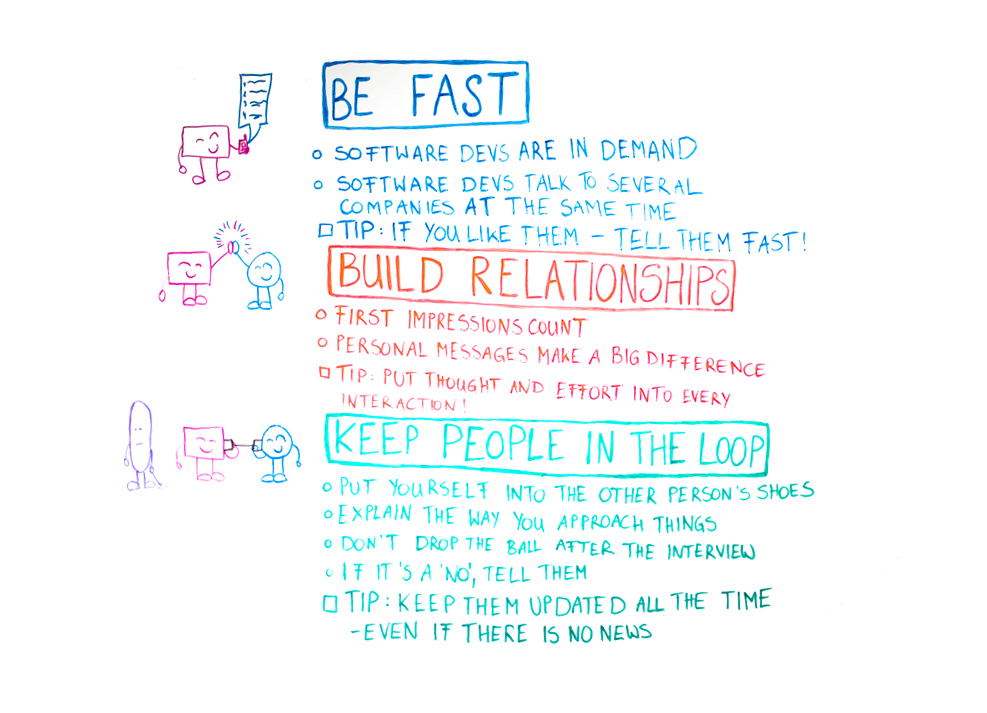 BE FAST
○ SOFTWARE DEVS ARE IN DEMAND
○ SOFTWARE DEVS TALK TO SEVERAL
COMPANIES AT THE SAME TIME
□ TIP: IF YOU LIKE THEM – TELL THEM FAST!
BUILD RELATIONSHIPS
○ FIRST IMPRESSIONS COUNT
○ PERSONAL MESSAGES MAKE A BIG DIFFERENCE
□ TIP: PUT THOUGHT AND EFFORT INTO EVERY
INTERACTION!
KEEP PEOPLE IN THE LOOP
○ PUT YOURSELF INTO THE OTHER PERSON'S SHOES
○ EXPLAIN THE WAY YOU APPROACH THINGS
○ DON'T DROP THE BALL AFTER THE INTERVIEW
○ IF IT'S A 'NO', TELL THEM
□ TIP: KEEP THEM UPDATED ALL THE TIME
- EVEN IF THERE IS NO NEWS